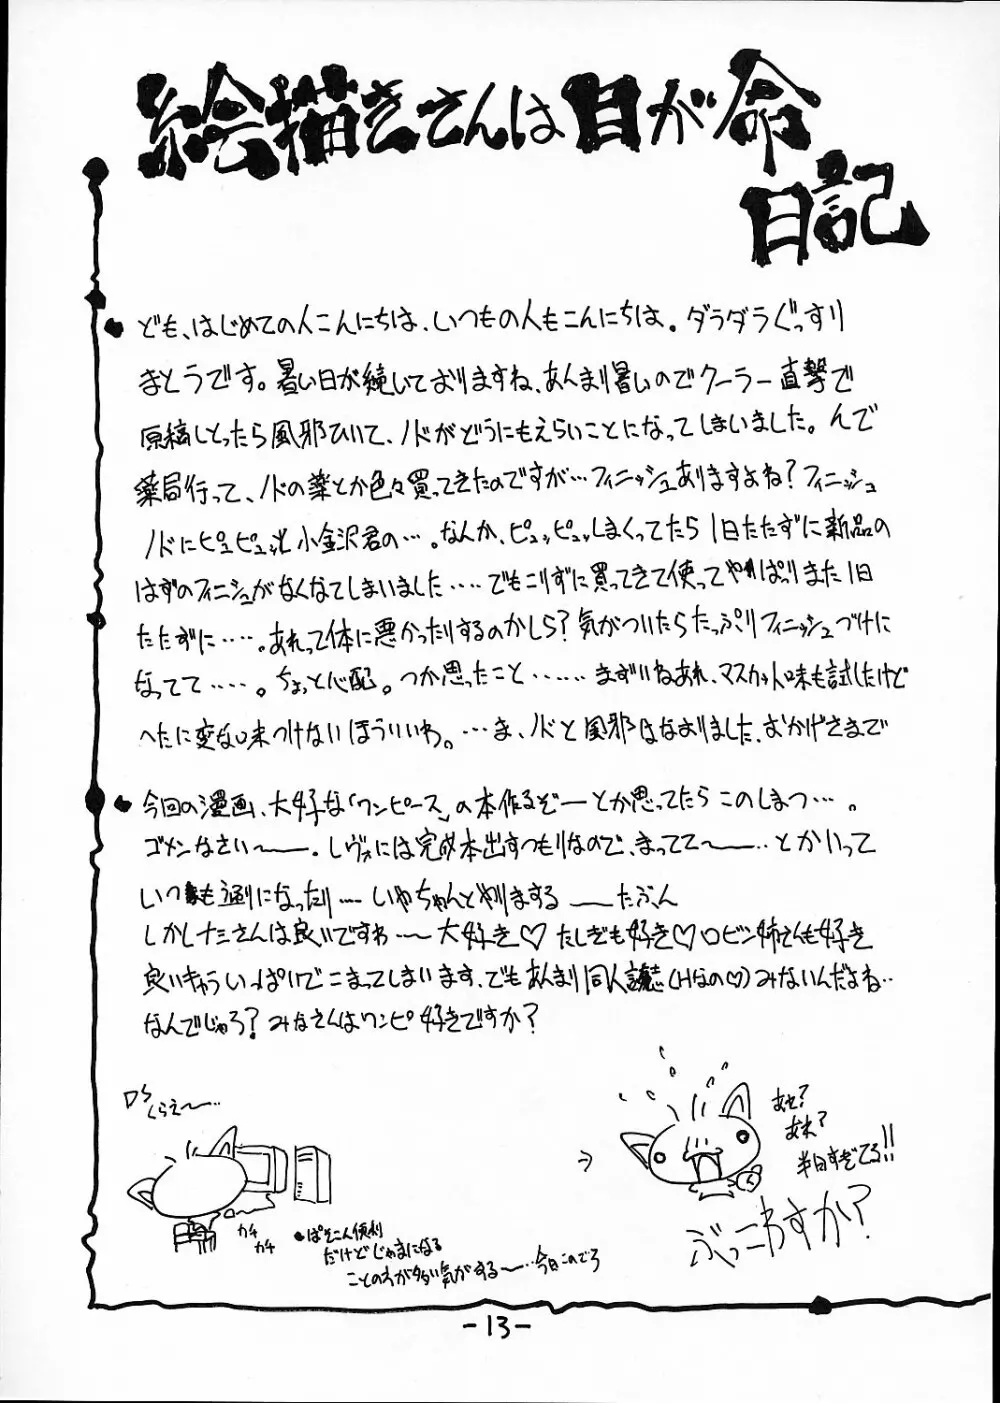 絵描きさんは目が命
日記
ども、はじめての人こんにちは、いつもの人もこんにちは。ダラダラぐっすり
まとうです。暑い日が続いておりますね、あんまり暑いのでクーラー直撃で
原稿しとったら風邪ひいて、ノドがどうにもえらいことになってしまいました。んで
薬局行って、ノドの薬とか色々買ってきたのですが…フィニッシュありますよね?フィニッシュ
ノドにピュピュッと小金沢君の…。なんか、ピュッピュッしまくってたら1日たたずに新品の
はずのフィニシュがなくなてしまいました‥‥でもこりずに買ってきて使ってやっぱりまた1日
たたずに‥‥‥。あれって体に悪かったりするのかしら?気がついたらたっぷりフィニッシュづけに
なってて‥‥‥。ちょっと心配。つか思ったこと‥‥‥まずいねあれ、マスカット味も試したけど
へたに変な味つけないほういいわ。…ま、ノドと風邪はなおりました、おかげさまで
今回の漫画、大好な「ワンピース」の本作るぞーとか思ってたらこのしまつ…。
ゴメンなさい〜。レヴォには完成本出すつもりなので、まってて〜‥とかいって
いつも通りになったり‥‥いやちゃんとやりまする――たぶん
しかしナミさんは良いですわ〜大好き♡たしぎも好き♡ロビン姉さんも好き
良いきゃらいっぱいでこまってしまいます、でもあんまり同人誌(Hなの♡)みないんだよね‥
なんでじゃろ?みなさんはワンピ好きですか?
くらえ〜‥
カチ
カチ
ぱそこん便利
だけどじゃまになる
ことのわが多い気がする〜‥今日このごろ
あせ?
あれ?
半日すぎてる!!
ぶっこわすか?
-13-